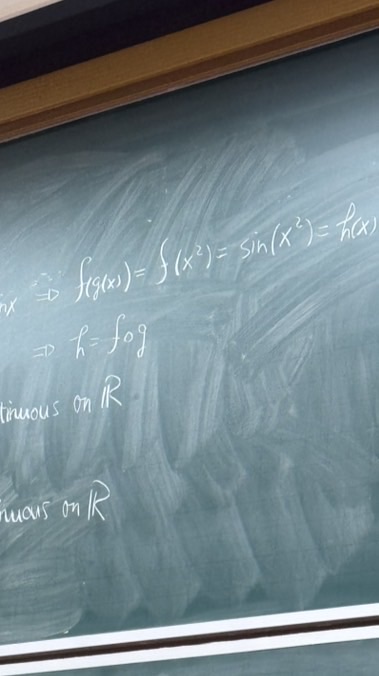 nx ⇒ f(g(x)) = f(x²) = sin(x²) = h(x)
⇒ h = f∘g
tinuous on ℝ
nuous on ℝ